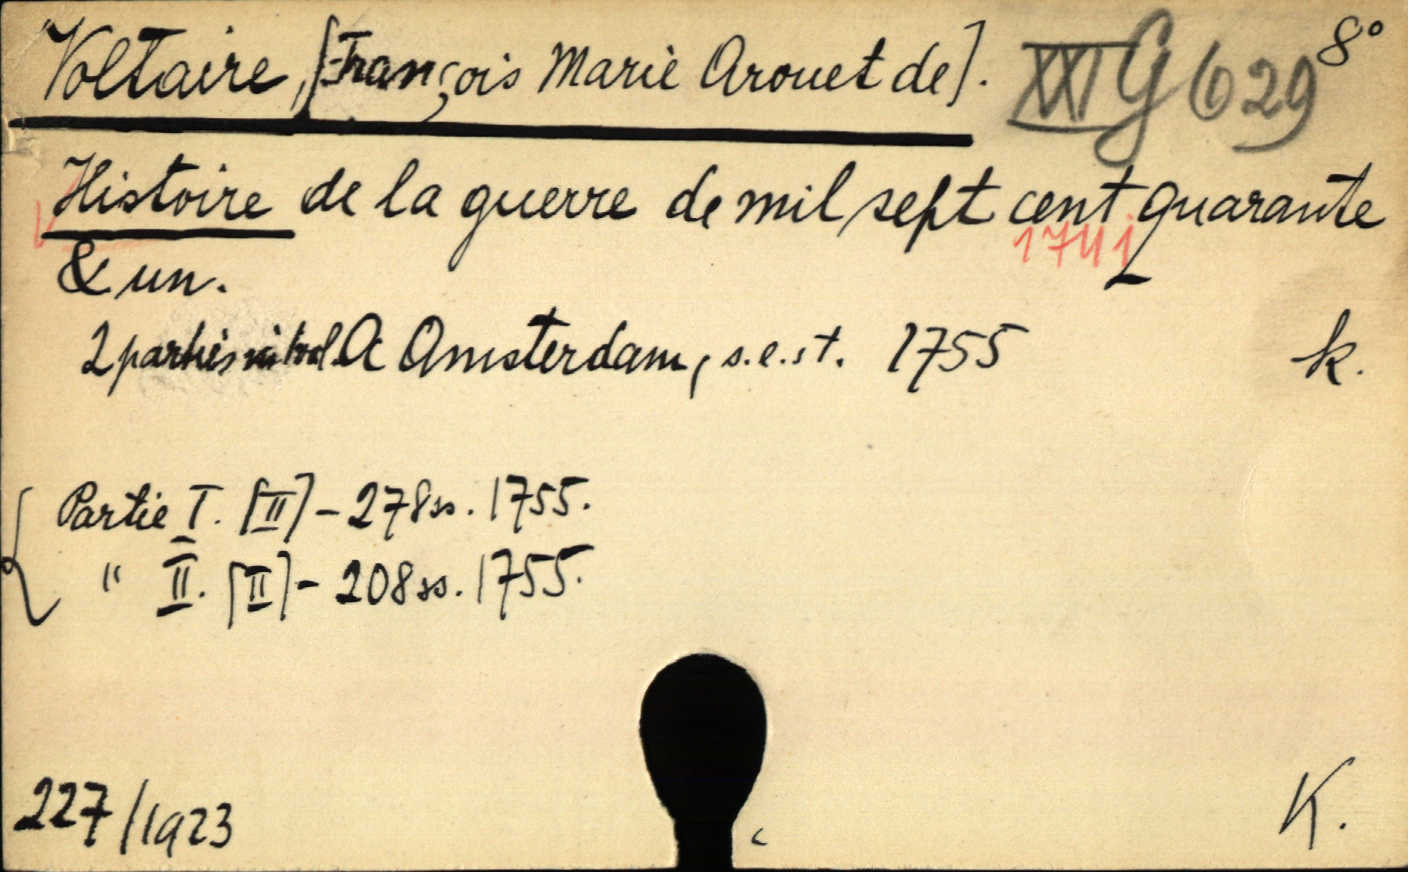 Voltaire, [François Marie Arouet de]. XXI G 629 8°
Histoire de la guerre de mil sept cent quarante
1741
& un.
2 parties A Amsterdam, s.e.s t. 1755 k.
Partie I. [II] - 278 ss. 1755.
" II. [II] - 208 ss. 1755.
227/1923 K.